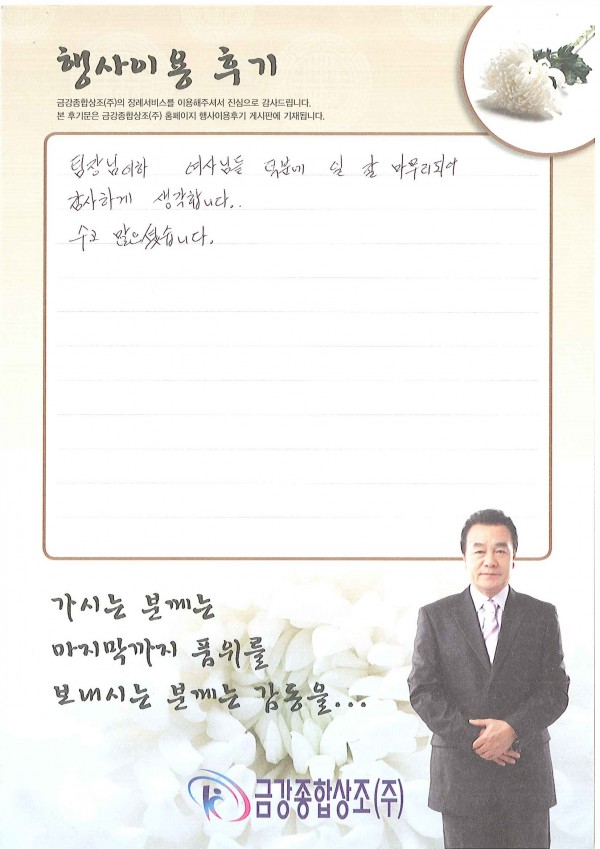 행사이용 후기
금강종합상조(주)의 장례서비스를 이용해주셔서 진심으로 감사드립니다.
본 후기문은 금강종합상조(주) 홈페이지 행사이용후기 게시판에 기재됩니다.
팀장님이하 여사님들 덕분에 일 잘 마무리되어
감사하게 생각합니다..
수고 많으셨습니다.
가시는 분께는
마지막까지 품위를
보내시는 분께는 감동을...
금강종합상조(주)